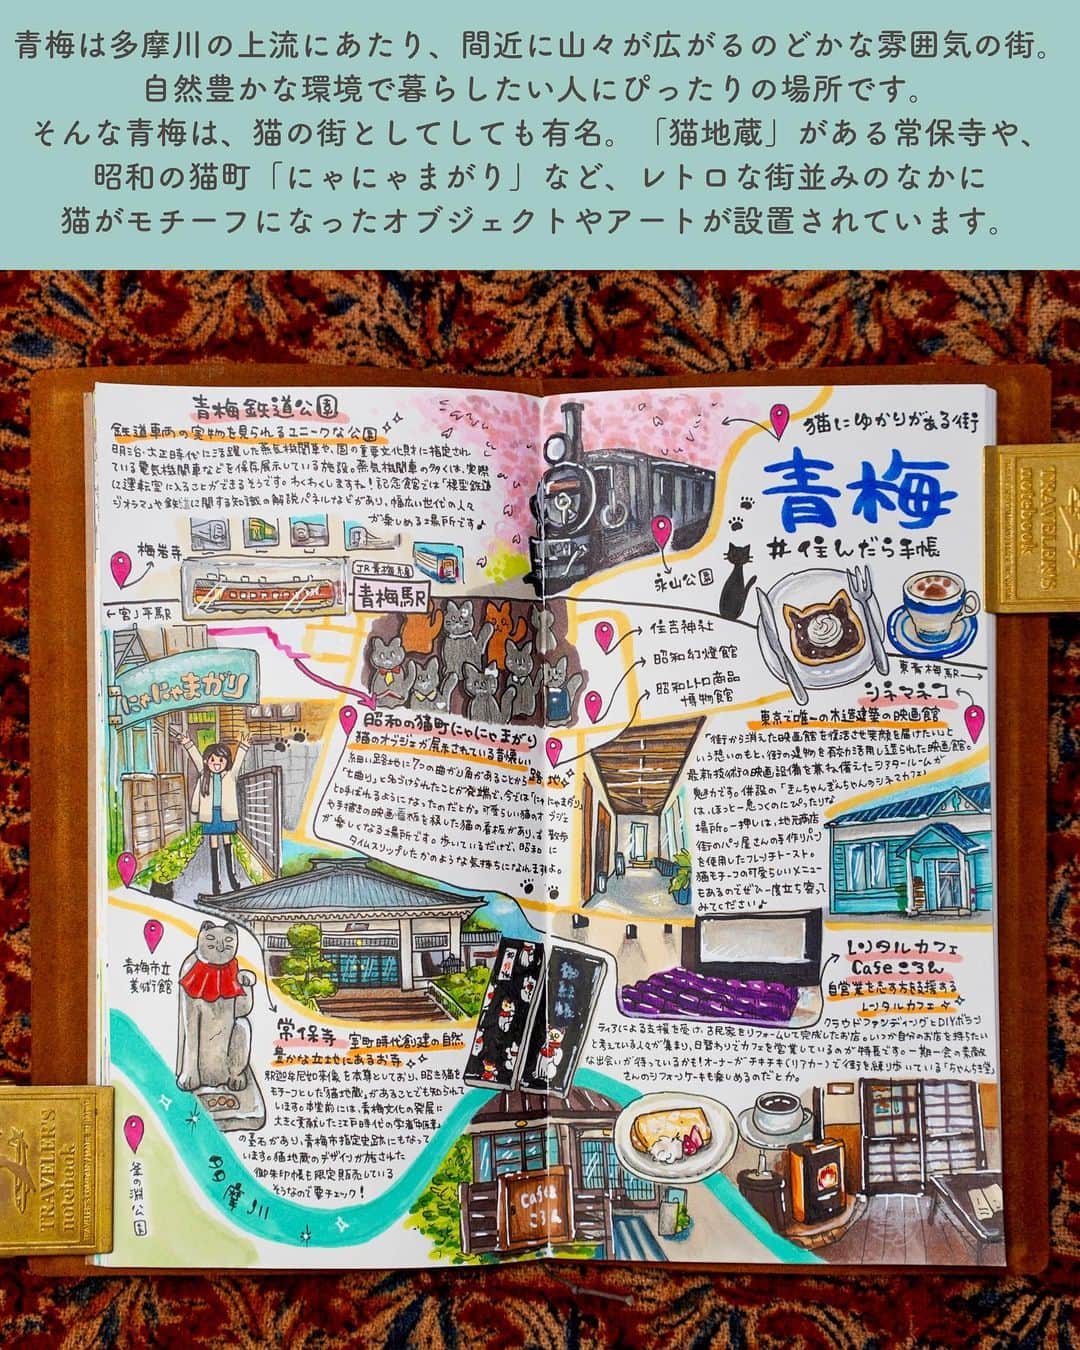 青梅は多摩川の上流にあたり、間近に山々が広がるのどかな雰囲気の街。
自然豊かな環境で暮らしたい人にぴったりの場所です。
そんな青梅は、猫の街としてしても有名。「猫地蔵」がある常保寺や、
昭和の猫町「にゃにゃまがり」など、レトロな街並みのなかに
猫がモチーフになったオブジェクトやアートが設置されています。
青梅鉄道公園
鉄道車両の実物を見られるユニークな公園
明治・大正時代に活躍した蒸気機関車や、国の重要文化財に指定され
ている電気機関車などを保存展示している施設。蒸気機関車の多くは、実際
に運転室に入ることができるそうです。わくわくしますね！記念館では「模型鉄道
ジオラマ」や鉄道に関する知識の解説パネルなどがあり、幅広い世代の人々
が楽しめる場所です♪
猫にゆかりがある街
青梅
#住んだら手帳
梅岩寺
←宮ノ平駅
JR青梅線
青梅駅
永山公園
住吉神社
昭和幻燈館
昭和レトロ商品
博物館
東青梅駅→
にゃにゃまがり
昭和の猫町にゃにゃまがり
猫のオブジェが展示されている昔懐しい路地
細い路地に7つの曲がり角があることから
「七曲り」と名づけられたことが発端で、今では「にゃにゃまがり」
と呼ばれるようになったのだとか。可愛らしい猫のオブジェ
や手描きの映画看板を模した猫の看板があり、お散歩
が楽しくなる場所です。歩いているだけで、昭和に
タイムスリップしたかのような気持ちになれますよ。
シネマネコ
東京で唯一の木造建築の映画館
「街から消えた映画館を復活させ笑顔を届けたい」と
いう想いのもと、街の建物を有効活用し造られた映画館。
最新技術の映画設備を兼ね備えたシアタールームが
魅力です。併設の
は、ほっと一息つくのにぴったりな
場所。一押しは、地元商店
街のパン屋さんの手作りパン
を使用したフレンチトースト。
猫モチーフの可愛らしいメニュー
もあるのでぜひ一度立ち寄って
みてください♪
青梅市立
美術館
常保寺
室町時代創建の自然
豊かな立地にあるお寺
釈迦牟尼如来像を本尊としており、招き猫を
モチーフとした「猫地蔵」があることでも知られて
います。本堂前には、青梅文化の発展に
大きく貢献した江戸時代の学者
の墓石があり、青梅市指定史跡にもなって
います。猫地蔵のデザインが施された
御朱印帳も限定販売している
そうなので要チェック！
レンタルカフェ
Cafeころん
自営業を志す方を応援する
レンタルカフェ
クラウドファンディングとDIYボラン
ティアによる支援を受け、古民家をリフォームして完成したお店。いつか自分のお店を持ちたい
と考えている人々が集まり、日替わりでカフェを営業しているのが特長です。一期一会の素敵
な出会いが待っているかも！オーナーがチキチキ(リアカー)で街を練り歩いている
さんのシフォンケーキも楽しめるのだとか。
多摩川
釜の淵公園
Cafe
ころん
TRAVELER'S
notebook
TRAVELER'S
notebook